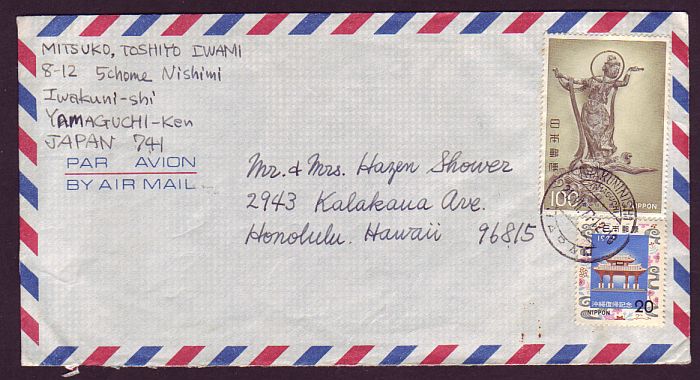 MITSUKO, TOSHIYO IWAMI
8-12 5chome Nishimi
Iwakuni-shi
YAMAGUCHI-Ken
JAPAN 741
PAR AVION
BY AIR MAIL
Mr. & Mrs. Hazen Shower
2943 Kalakaua Ave.
Honolulu. Hawaii 96815
日本郵便
100
NIPPON
IWAKUNI
JAPAN
日本郵便
沖縄復帰記念
NIPPON 20